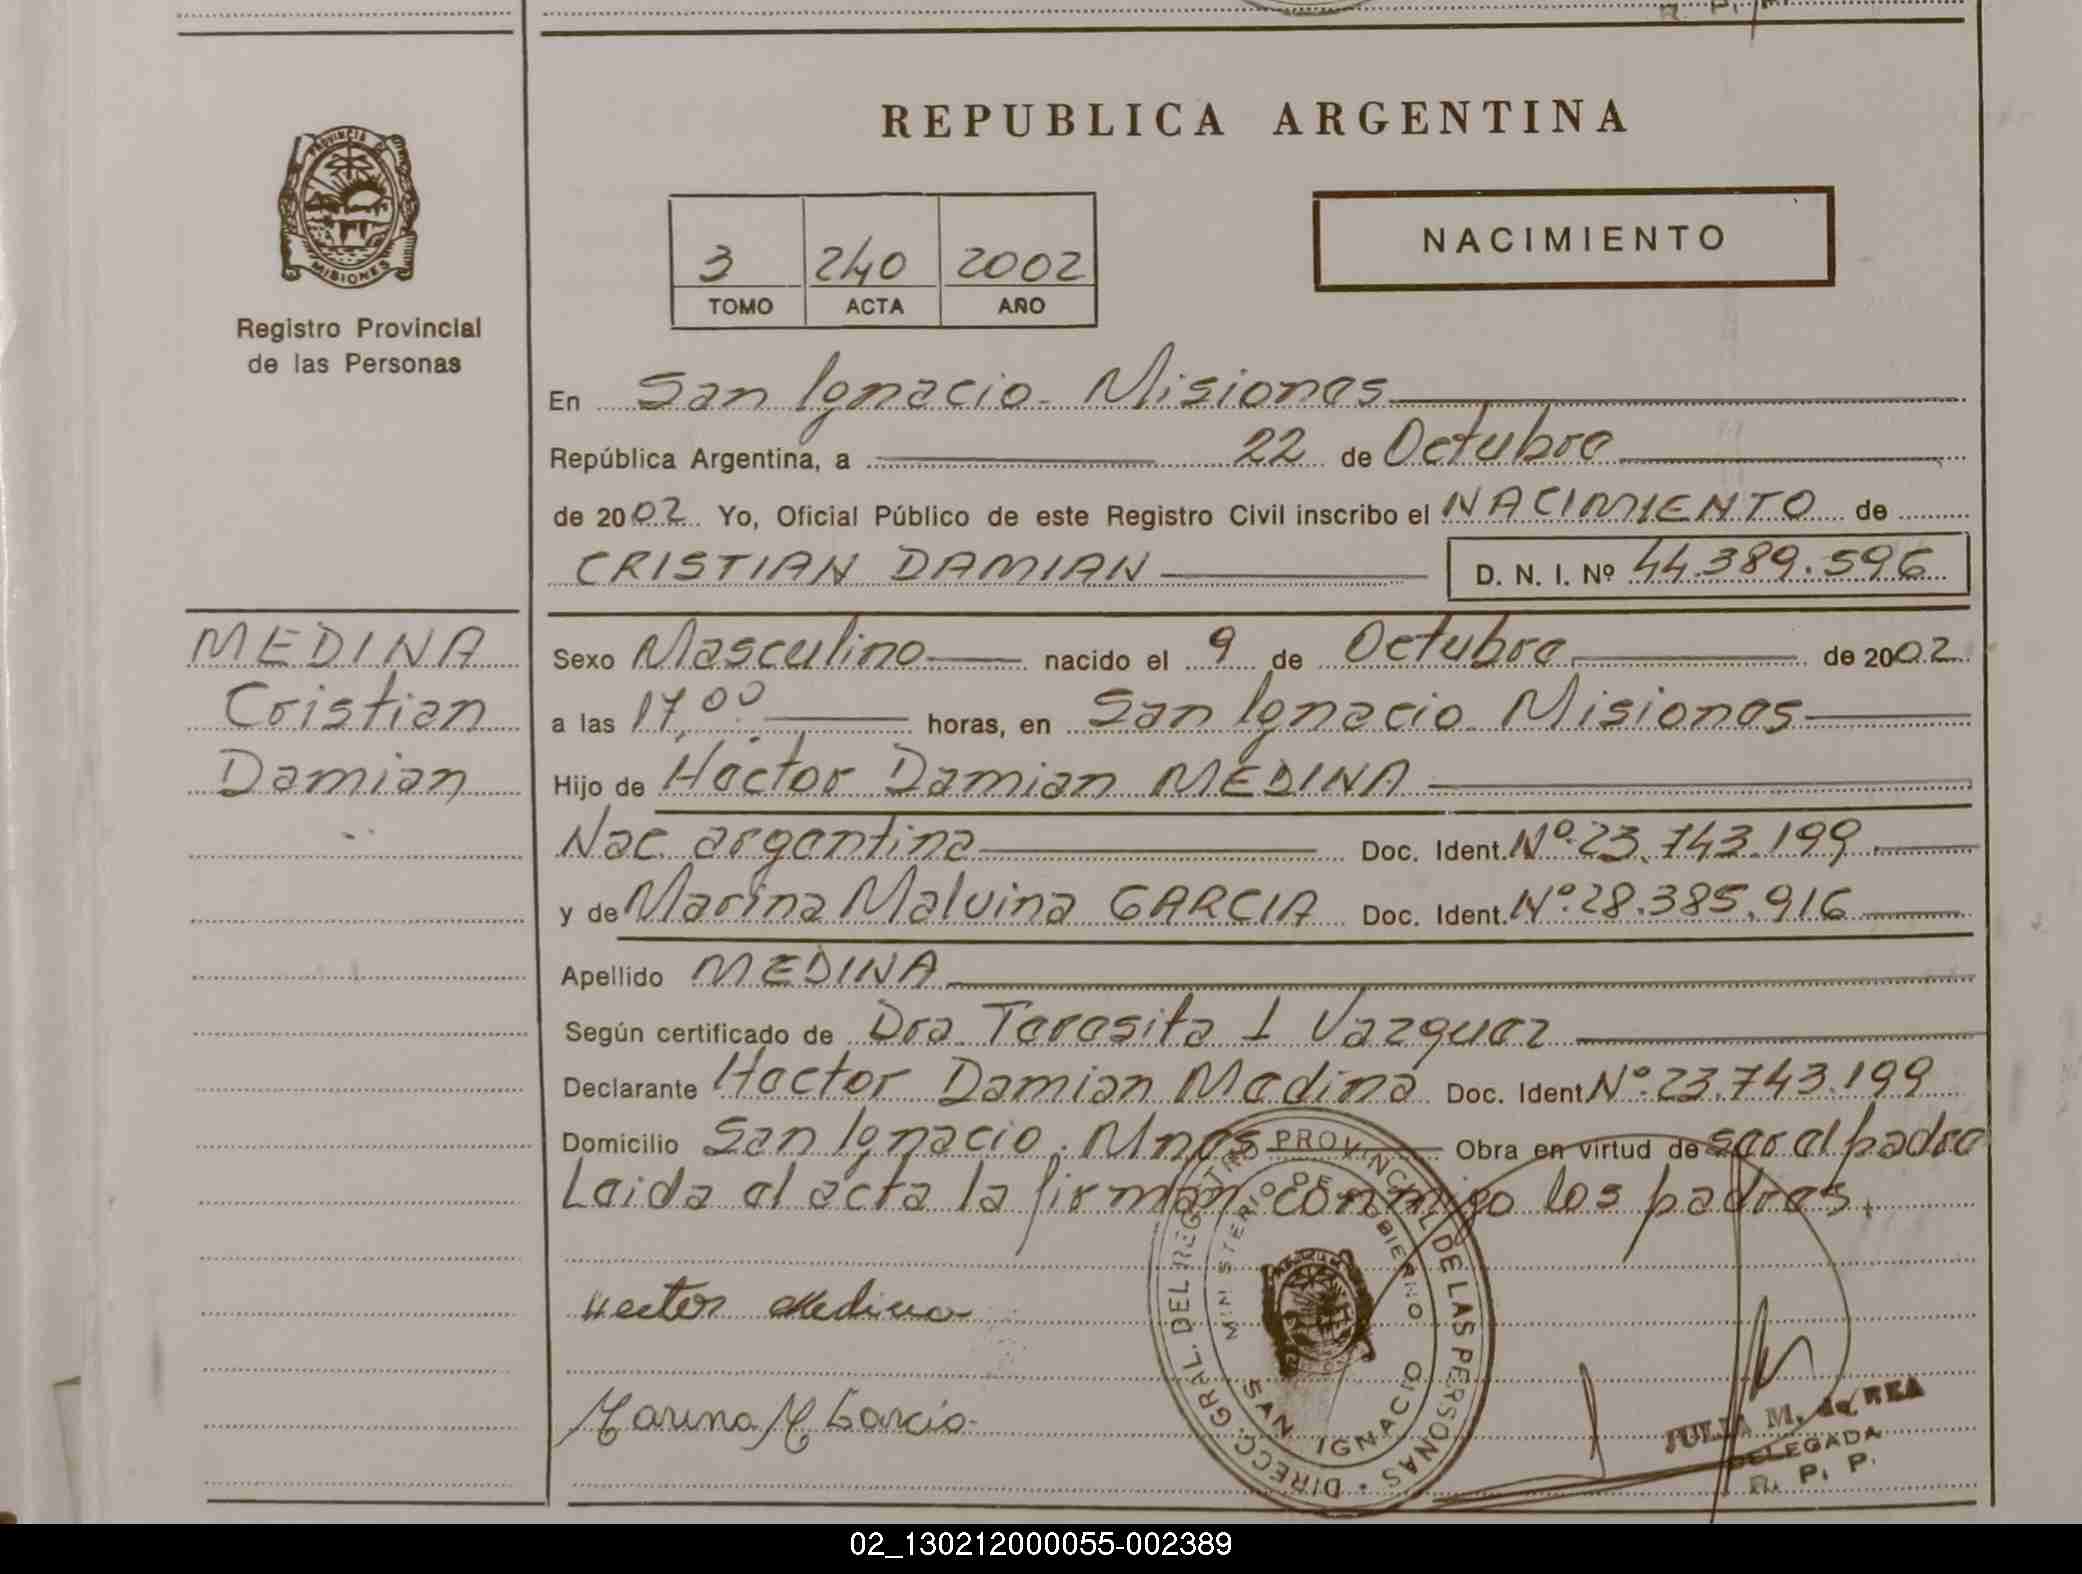 R. P. P.
PROVINCIA DE
MISIONES
Registro Provincial
de las Personas
REPUBLICA ARGENTINA
3 240 2002
TOMO ACTA AÑO
NACIMIENTO
En San Ignacio - Misiones
República Argentina, a 22 de Octubre
de 2002 Yo, Oficial Público de este Registro Civil inscribo el NACIMIENTO de
CRISTIAN DAMIAN D. N. I. Nº 44.389.596
MEDINA
Cristian
Damian
Sexo Masculino nacido el 9 de Octubre de 2002
a las 17,00 horas, en San Ignacio - Misiones
Hijo de Hector Damian MEDINA
Nac. argentina Doc. Ident. Nº 23.743.199
y de Marina Malvina GARCIA Doc. Ident. Nº 28.385.916
Apellido MEDINA
Según certificado de Dra. Teresita I Vazquez
Declarante Hector Damian Medina Doc. Ident Nº 23.743.199
Domicilio San Ignacio. Mnes Obra en virtud de ser el padre
Leida el acta la firman conmigo los padres.
Hector Medina
Marina M Garcia
DIRECC. GRAL. DEL REGISTRO PROVINCIAL DE LAS PERSONAS
MINISTERIO DE GOBIERNO
SAN IGNACIO
JULIA M. de REA
DELEGADA
R. P. P.
02_130212000055-002389